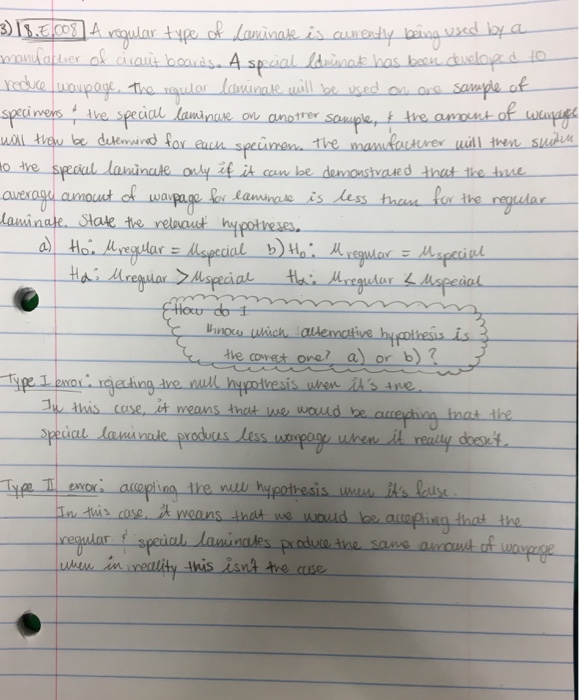 3) 8.E.008 A regular type of laminate is currently being used by a
manufacturer of circuit boards. A special laminate has been developed to
reduce warpage. The regular laminate will be used on one sample of
specimens & the special laminate on another sample, & the amount of warpage
will then be determined for each specimen. The manufacturer will then switch
to the special laminate only if it can be demonstrated that the true
average amount of warpage for laminate is less than for the regular
laminate. State the relevant hypotheses.
a) H₀: μregular = μspecial b) H₀: μregular = μspecial
Ha: μregular > μspecial Ha: μregular < μspecial
How do I
know which alternative hypothesis is
the correct one? a) or b) ?
Type I error: rejecting the null hypothesis when it's true.
In this case, it means that we would be accepting that the
special laminate produces less warpage when it really doesn't.
Type II error: accepting the null hypothesis when it's false.
In this case, it means that we would be accepting that the
regular & special laminates produce the same amount of warpage
when in reality this isn't the case